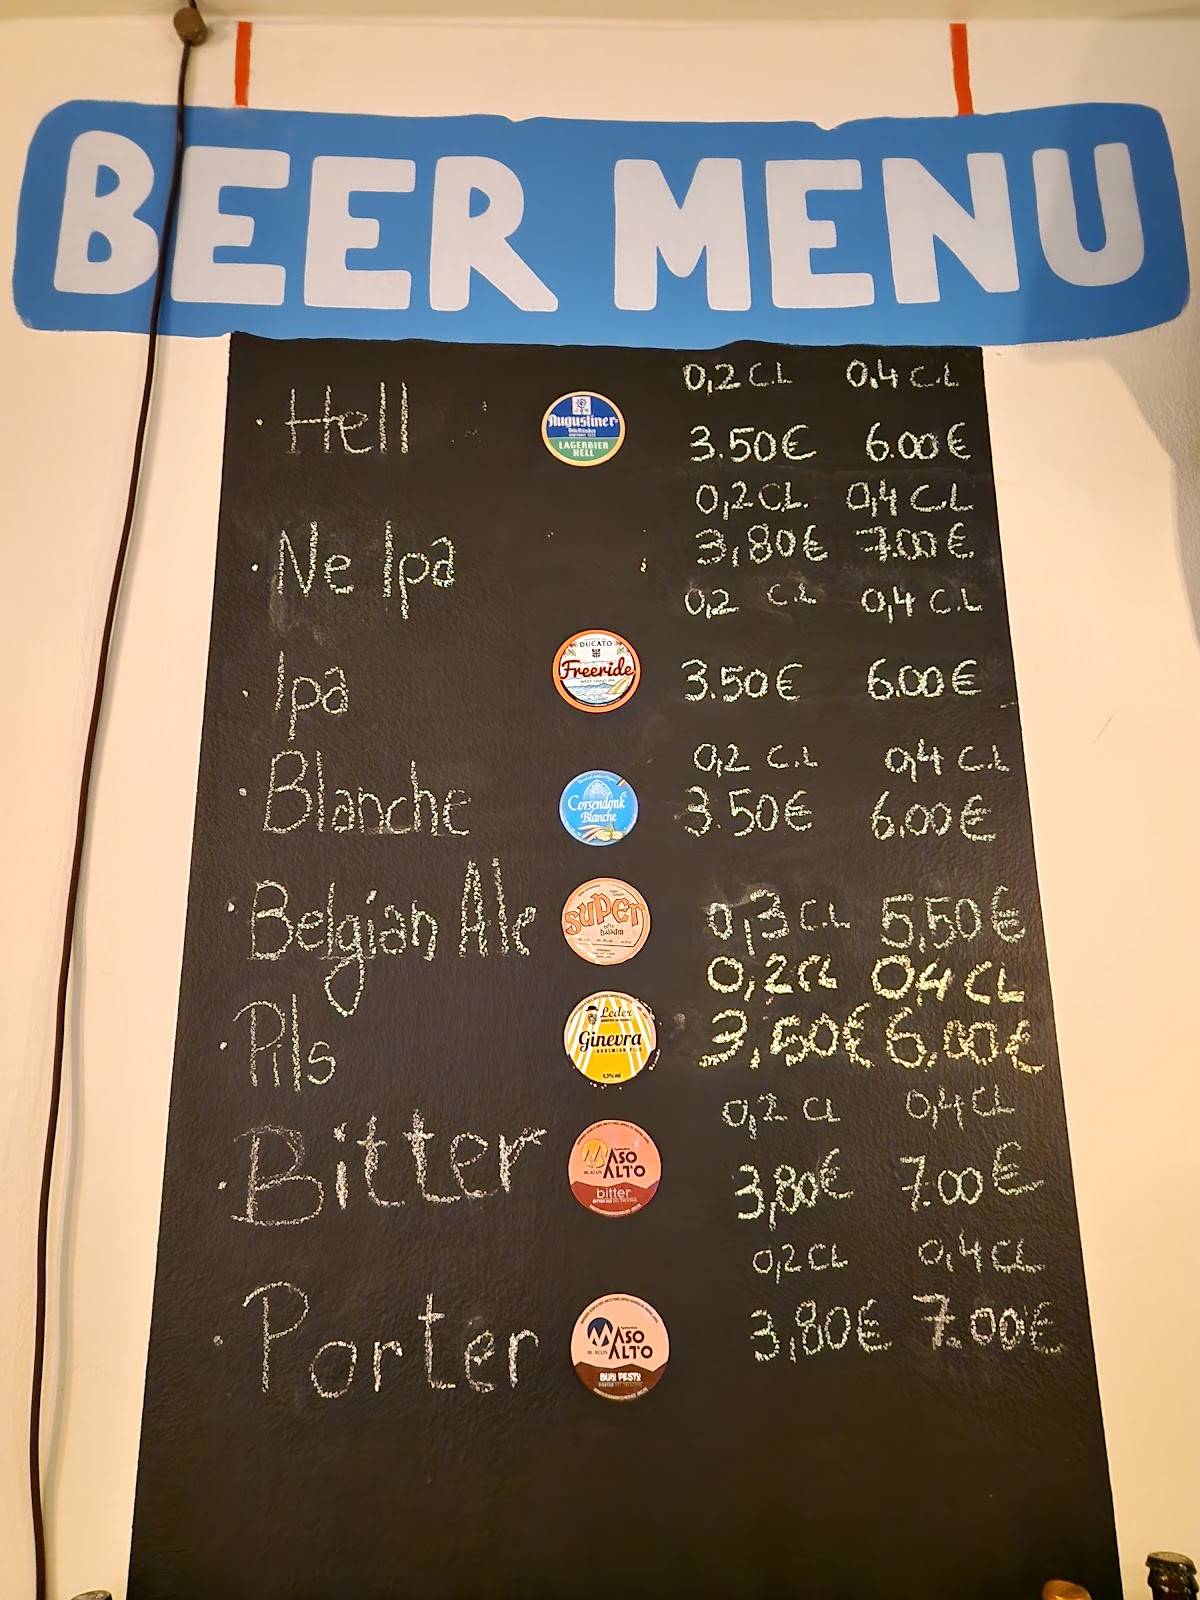 BEER MENU
0,2 C.L 0,4 C.L
· Hell Augustiner LAGERBIER HELL 3.50€ 6.00€
0,2 CL. 0,4 C.L
· Ne Ipa 3,80€ 7.00€
0,2 C.L 0,4 C.L
· Ipa DUCATO Freeride WEST COAST IPA 3.50€ 6.00€
0,2 C.L 0,4 C.L
· Blanche Corsendonk Blanche 3.50€ 6.00€
· Belgian Ale SUPER baladin 0,3 C.L 5,50€
0,2 CL 0,4 CL
· Pils Leder Ginevra BOHEMIAN PILS 4,9% vol 3,50€ 6,00€
0,2 CL 0,4 CL
· Bitter MASO ALTO bitter 3,80€ 7.00€
0,2 CL 0,4 CL
· Porter MASO ALTO BUIO PESTO 3,80€ 7.00€